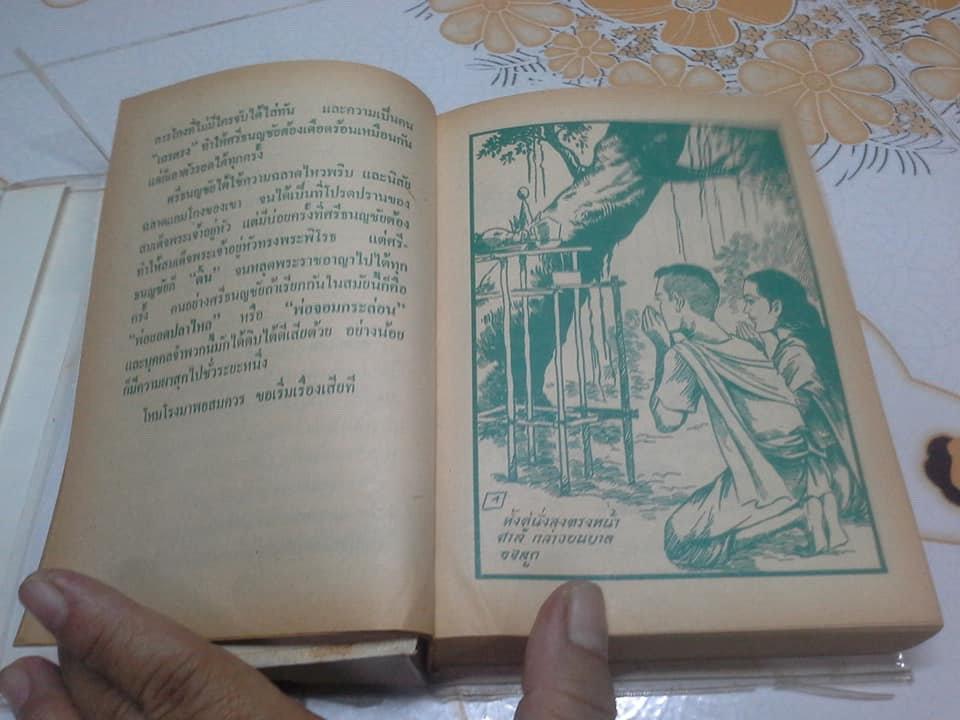 การโกงที่ไม่มีใครจับได้ไล่ทัน และความเป็นคน
"เถรตรง" ทำให้ศรีธนญชัยต้องเดือดร้อนเหมือนกัน
แต่ก็เอาตัวรอดได้ทุกครั้ง
ศรีธนญชัยได้ใช้ความฉลาดไหวพริบ และนิสัย
ฉลาดแกมโกงของเขา จนได้เป็นที่โปรดปรานของ
สมเด็จพระเจ้าอยู่หัว แต่มีบ่อยครั้งที่ศรีธนญชัยต้อง
ทำให้สมเด็จพระเจ้าอยู่หัวทรงพระพิโรธ แต่ศรี-
ธนญชัยก็ "ดิ้น" จนหลุดพระราชอาญาไปได้ทุก
ครั้ง คนอย่างศรีธนญชัยถ้าเรียกกันในสมัยนี้ก็คือ
"พ่อยอดปลาไหล" หรือ "พ่อจอมกระล่อน"
และบุคคลจำพวกนี้มักได้ดิบได้ดีเสียด้วย อย่างน้อย
ก็มีความผาสุกไปชั่วระยะหนึ่ง
โหมโรงมาพอสมควร ขอเริ่มเรื่องเสียที
ทั้งคู่นั่งลงตรงหน้า
ศาล กล่าวบนบาล
ขอลูก